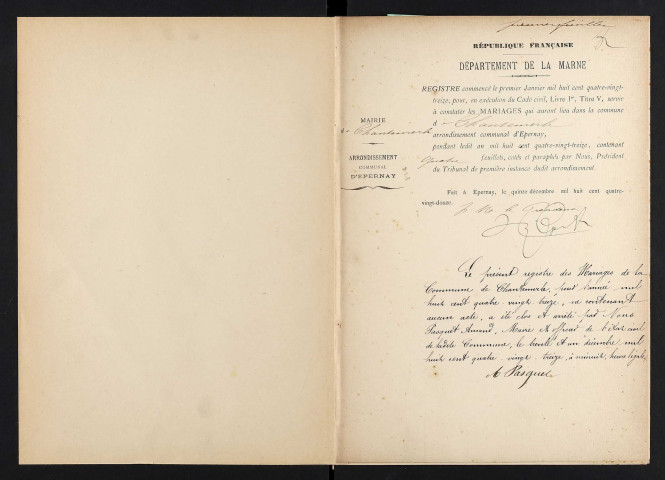 premier feuillet
RÉPUBLIQUE FRANÇAISE
DÉPARTEMENT DE LA MARNE
REGISTRE commencé le premier Janvier mil huit cent quatre-vingt-
treize, pour, en exécution du Code civil, Livre Ier, Titre V, servir
à constater les MARIAGES qui auront lieu dans la commune
d e Chantemerle
arrondissement communal d'Epernay,
pendant ledit an mil huit cent quatre-vingt-treize, contenant
quatre feuillets, cotés et paraphés par Nous, Président
du Tribunal de première instance dudit arrondissement.
MAIRIE
de Chantemerle
ARRONDISSEMENT
COMMUNAL
D'EPERNAY
Fait à Epernay, le quinze décembre mil huit cent quatre-
vingt-douze.
Le présent registre des Mariages de la
Commune de Chantemerle, pour l'année mil
huit cent quatre vingt treize, ne contenant
aucun acte, a été clos et arrêté par Nous
Pasquet Amand, Maire et officier de l'état civil
de ladite Commune, le trente et un décembre mil
huit cent quatre vingt treize, à minuit, heure légale
A Pasquet